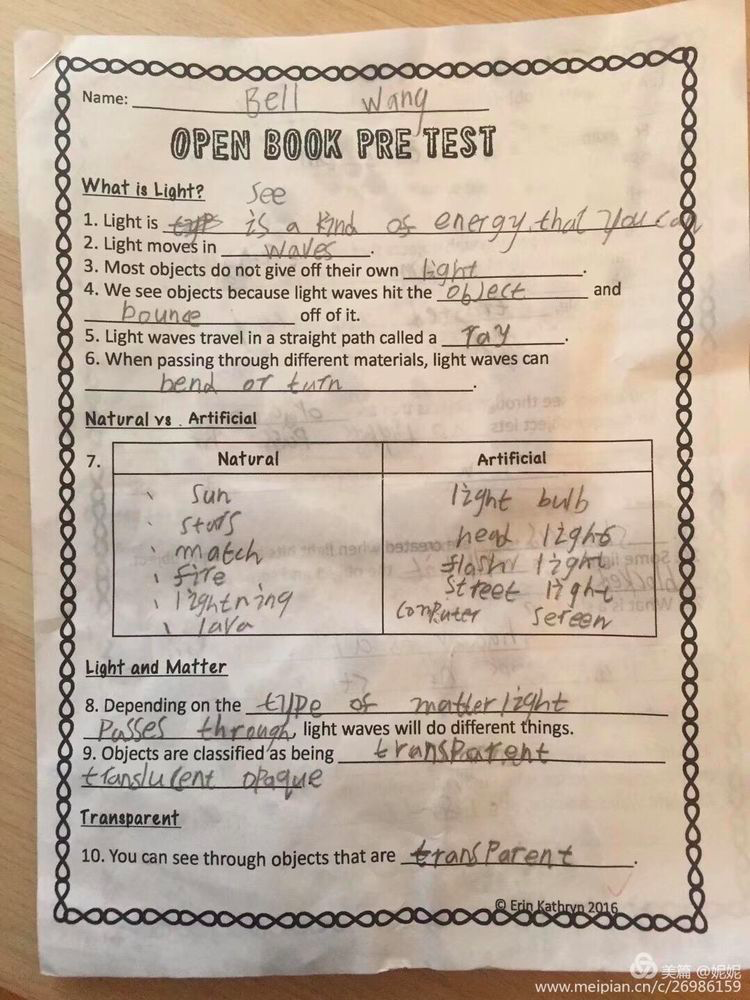 Name: Bell Wang
OPEN BOOK PRE TEST
What is Light? see
1. Light is is a kind of energy that you can
2. Light moves in waves.
3. Most objects do not give off their own light.
4. We see objects because light waves hit the object and
bounce off of it.
5. Light waves travel in a straight path called a ray.
6. When passing through different materials, light waves can
bend or turn.
Natural vs. Artificial
7. Natural Artificial
sun light bulb
stars head light
match flash light
fire street light
lightning computer screen
lava
Light and Matter
8. Depending on the type of matter light
passes through, light waves will do different things.
9. Objects are classified as being transparent
translucent opaque
Transparent
10. You can see through objects that are transparent.
© Erin Kathryn 2016
美篇 @妮妮
www.meipian.cn/c/26986159